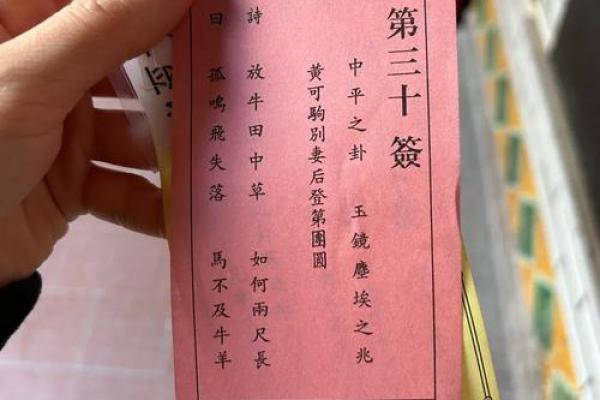 第三十簽
中平之卦 玉鏡塵埃之兆
黃可駒別妻后登第團圓
詩 放牛田中草 如何兩尺長
曰 孤鳴飛失落 馬不及牛羊